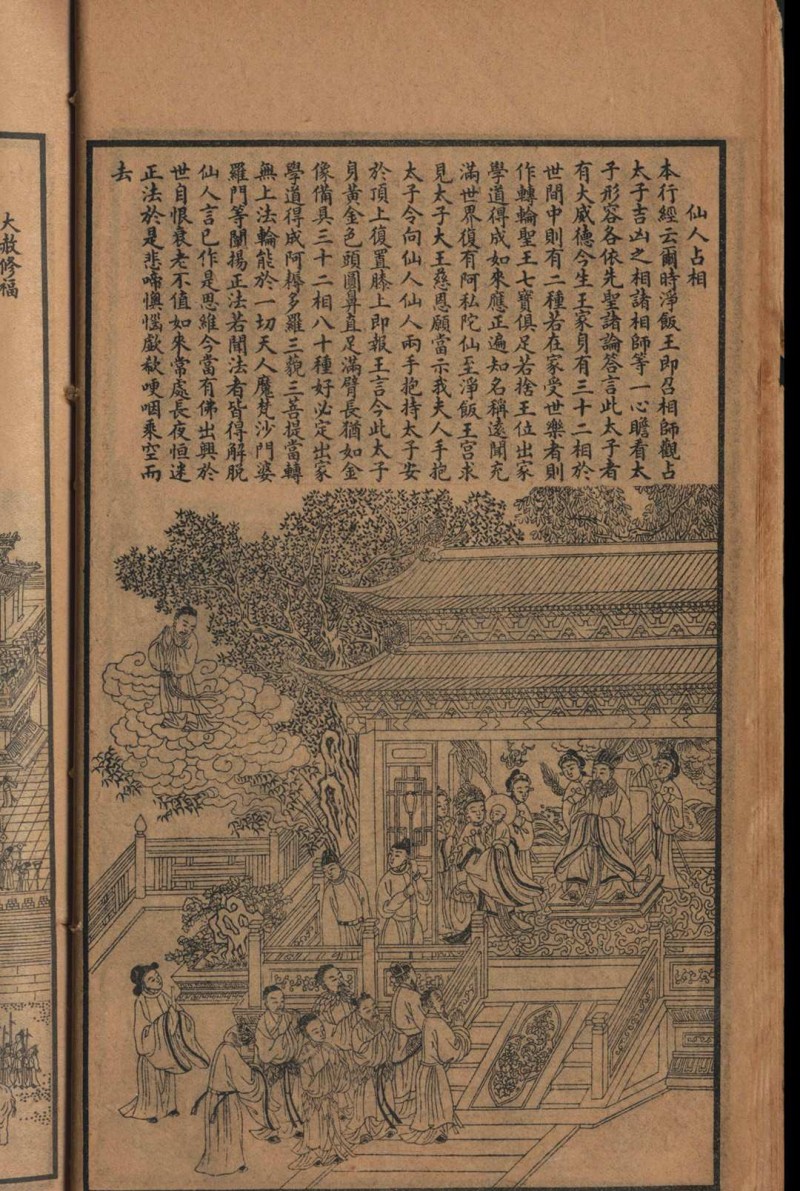 仙人占相
本行經云爾時淨飯王即召相師觀占
太子吉凶之相諸相師等一心瞻看太
子形容各依先聖諸論答言此太子者
有大威德今生王家身有三十二相於
世間中則有二種若在家受世樂者則
作轉輪聖王七寶俱足若捨王位出家
學道得成如來應正遍知名稱遠聞充
滿世界復有阿私陀仙至淨飯王宮求
見太子大王慈恩願當示我夫人手抱
太子令向仙人仙人兩手抱持太子安
於頂上復置膝上即報王言今此太子
身黃金色頭圓鼻直足滿臂長猶如金
像備具三十二相八十種好必定出家
學道得成阿耨多羅三藐三菩提當轉
無上法輪能於一切天人魔梵沙門婆
羅門等闡揚正法若聞法者皆得解脫
仙人言已作是思維今當有佛出興於
世自恨衰老不值如來常處長夜恒迷
正法於是悲啼懊惱歔欷哽咽乘空而
去
大赦修福